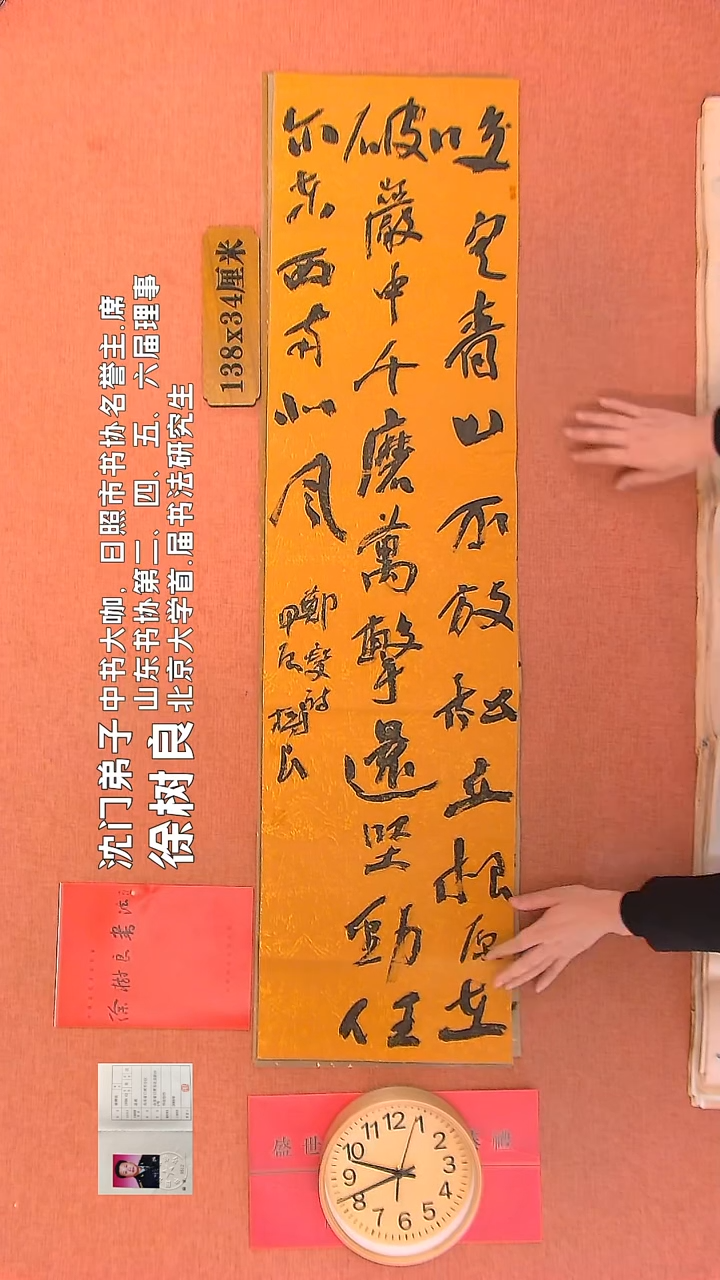 咬定青山不放松立根原在
破巖中千磨萬擊還堅勁任
尔东西南北风
鄭燮詩
甲辰樹良
138x34厘米
沈门弟子 中书大咖，日照市书协名誉主.席
山东书协第二、四、五、六届理事
徐树良 北京大学首.届书法研究生
徐樹良書法
盛世
禮
12
1
2
3
4
5
6
7
8
9
10
11